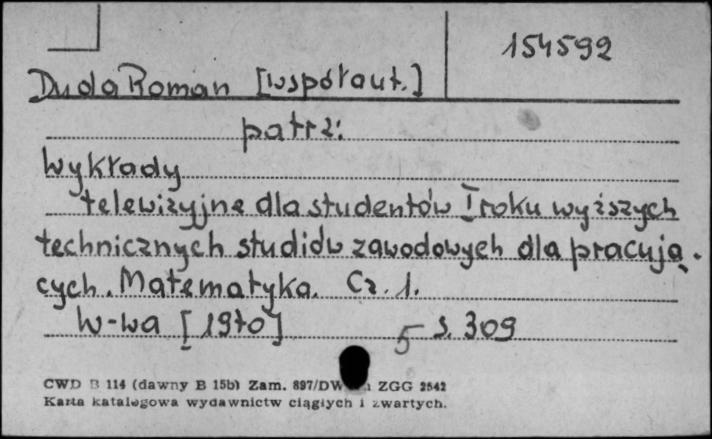 154592
Duda Roman [współaut.]
patrz:
Wykłady
telewizyjne dla studentów I roku wyższych
technicznych studiów zawodowych dla pracują-
cych. Matematyka. Cz. 1.
W-wa [1970] 5 s. 309
CWD B 114 (dawny B 15b) Zam. 897/DW ZGG 2542
Karta katalogowa wydawnictw ciągłych i zwartych.